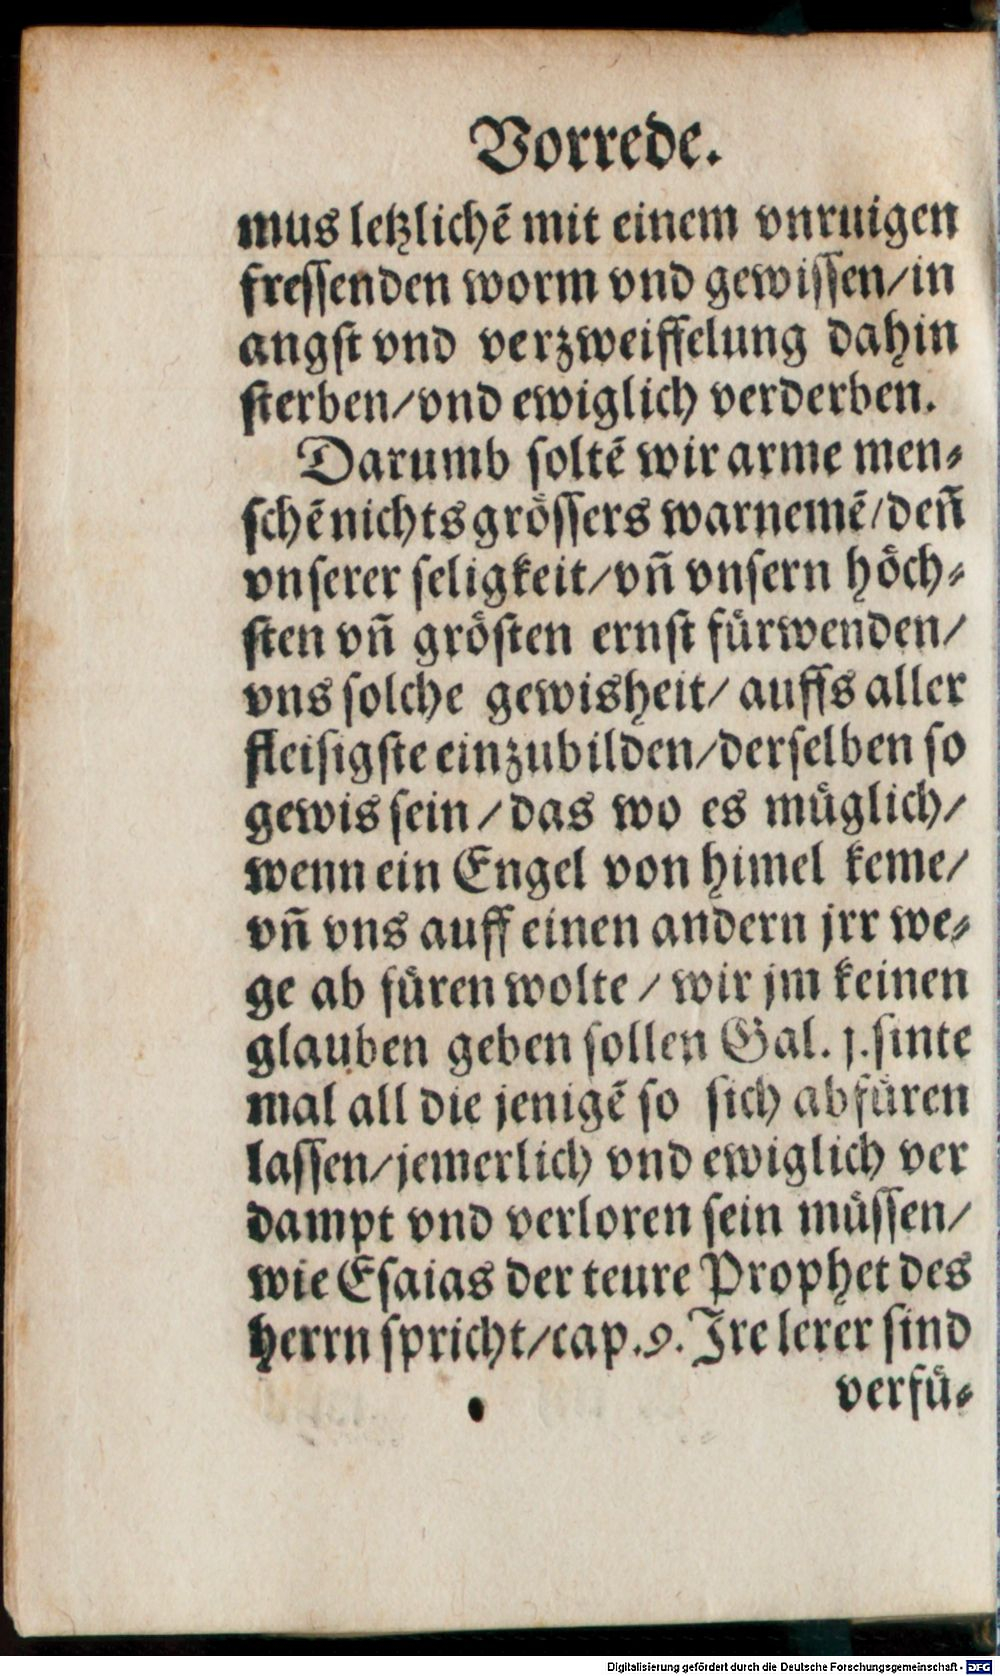 Vorrede.
mus letzlichē mit einem vnruigen
fressenden worm vnd gewissen/in
angst vnd verzweiffelung dahin
sterben/vnd ewiglich verderben.
Darumb soltē wir arme men⸗
schē nichts grössers warnemē/den̄
vnserer seligkeit/vn̄ vnsern höch⸗
sten vn̄ grösten ernst fürwenden/
vns solche gewisheit/ auffs aller
fleisigste einzubilden/derselben so
gewis sein/das wo es müglich/
wenn ein Engel von himel keme/
vn̄ vns auff einen andern jrr we⸗
ge ab füren wolte/wir jm keinen
glauben geben sollen Gal. j. sinte
mal all die jenigē so sich abfüren
lassen/jemerlich vnd ewiglich ver
dampt vnd verloren sein müssen/
wie Esaias der teure Prophet des
herrn spricht/cap. 9. Jre lerer sind
verfü⸗
Digitalisierung gefördert durch die Deutsche Forschungsgemeinschaft - DFG